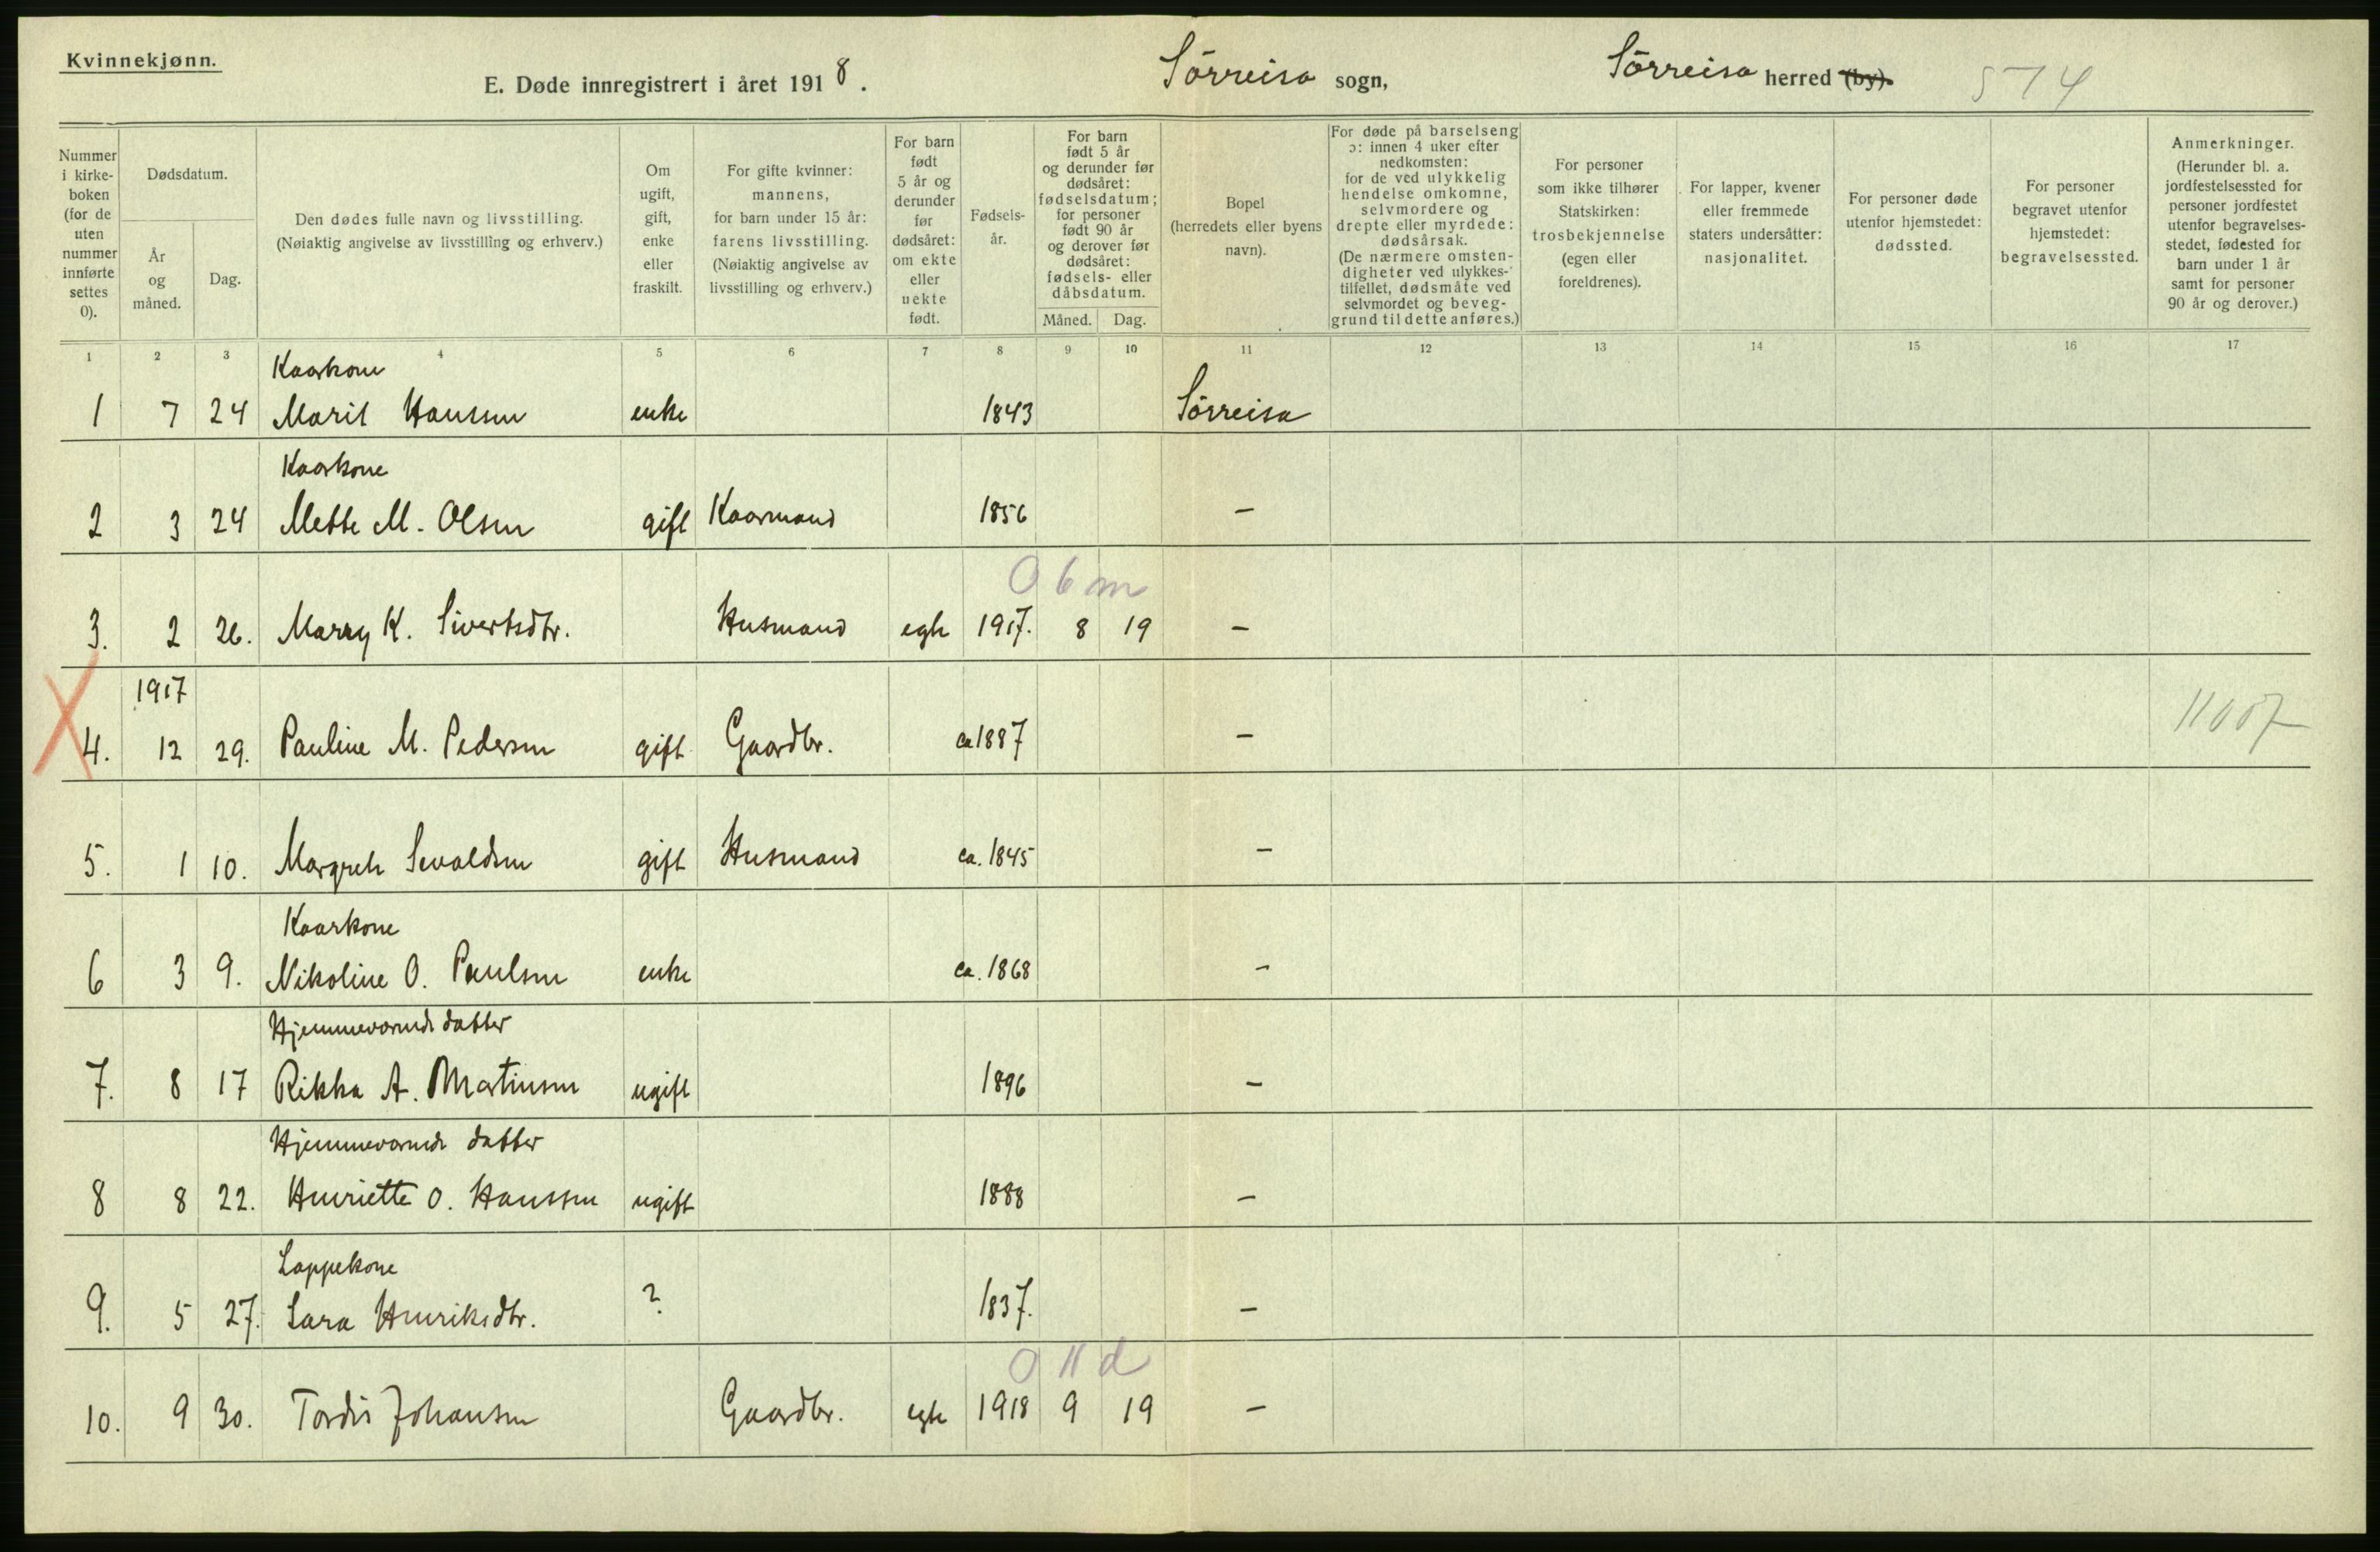 Kvinnekjønn.
E. Døde innregistrert i året 1918. Sörreisa sogn, Sörreisa herred (by). 574
Nummer i kirke-boken (for de uten nummer innførte settes 0).
Dødsdatum.
År og måned.
Dag.
Den dødes fulle navn og livsstilling.
(Nøiaktig angivelse av livsstilling og erhverv.)
Om ugift, gift, enke eller fraskilt.
For gifte kvinner: mannens, for barn under 15 år: farens livsstilling.
(Nøiaktig angivelse av livsstilling og erhverv.)
For barn født 5 år og derunder før dødsåret: om ekte eller uekte født.
Fødsels-år.
For barn født 5 år og derunder før dødsåret: fødselsdatum; for personer født 90 år og derover før dødsåret: fødsels- eller dåbsdatum.
Måned. Dag.
Bopel (herredets eller byens navn).
For døde på barselseng ɔ: innen 4 uker efter nedkomsten: for de ved ulykkelig hendelse omkomne, selvmordere og drepte eller myrdede: dødsårsak.
(De nærmere omsten-digheter ved ulykkes-tilfellet, dødsmåte ved selvmordet og beveg-grund til dette anføres.)
For personer som ikke tilhører Statskirken: trosbekjennelse (egen eller foreldrenes).
For lapper, kvener eller fremmede staters undersåtter: nasjonalitet.
For personer døde utenfor hjemstedet: dødssted.
For personer begravet utenfor hjemstedet: begravelsessted.
Anmerkninger.
(Herunder bl. a. jordfestelsessted for personer jordfestet utenfor begravelses-stedet, fødested for barn under 1 år samt for personer 90 år og derover.)
1 2 3 4 5 6 7 8 9 10 11 12 13 14 15 16 17
Kaarkone
1 7 24 Marit Hanssen enke 1843 Sörreisa
Kaarkone
2 3 24 Mette M. Olsen gift Kaarmand 1856 –
0 6 m
3. 2 26. Marry K. Sivertsdtr. Husmand egte 1917. 8 19 –
1917
4. 12 29. Pauline M. Pedersen gift Gaardbr. ca 1887 – 11007
5. 1 10. Margrete Sevaldsen gift Husmand ca. 1845 –
Kaarkone
6 3 9. Nikoline O. Paulsen enke ca. 1868 –
Hjemmeværende datter
7. 8 17 Rikka A. Martinsen ugift 1896 –
Hjemmeværende datter
8 8 22. Henriette O. Hanssen ugift 1888 –
Lappekone
9. 5 27. Sara Henriksdtr. ? 1837. –
0 11 d
10. 9 30. Tordis Johansen Gaardbr. egte 1918 9 19 –